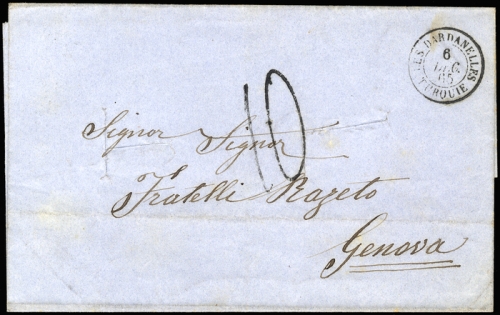 LES DARDANELLES
6
DEC.
65
TURQUIE
10
Signor Signor
Fratelli Razeto
Genova